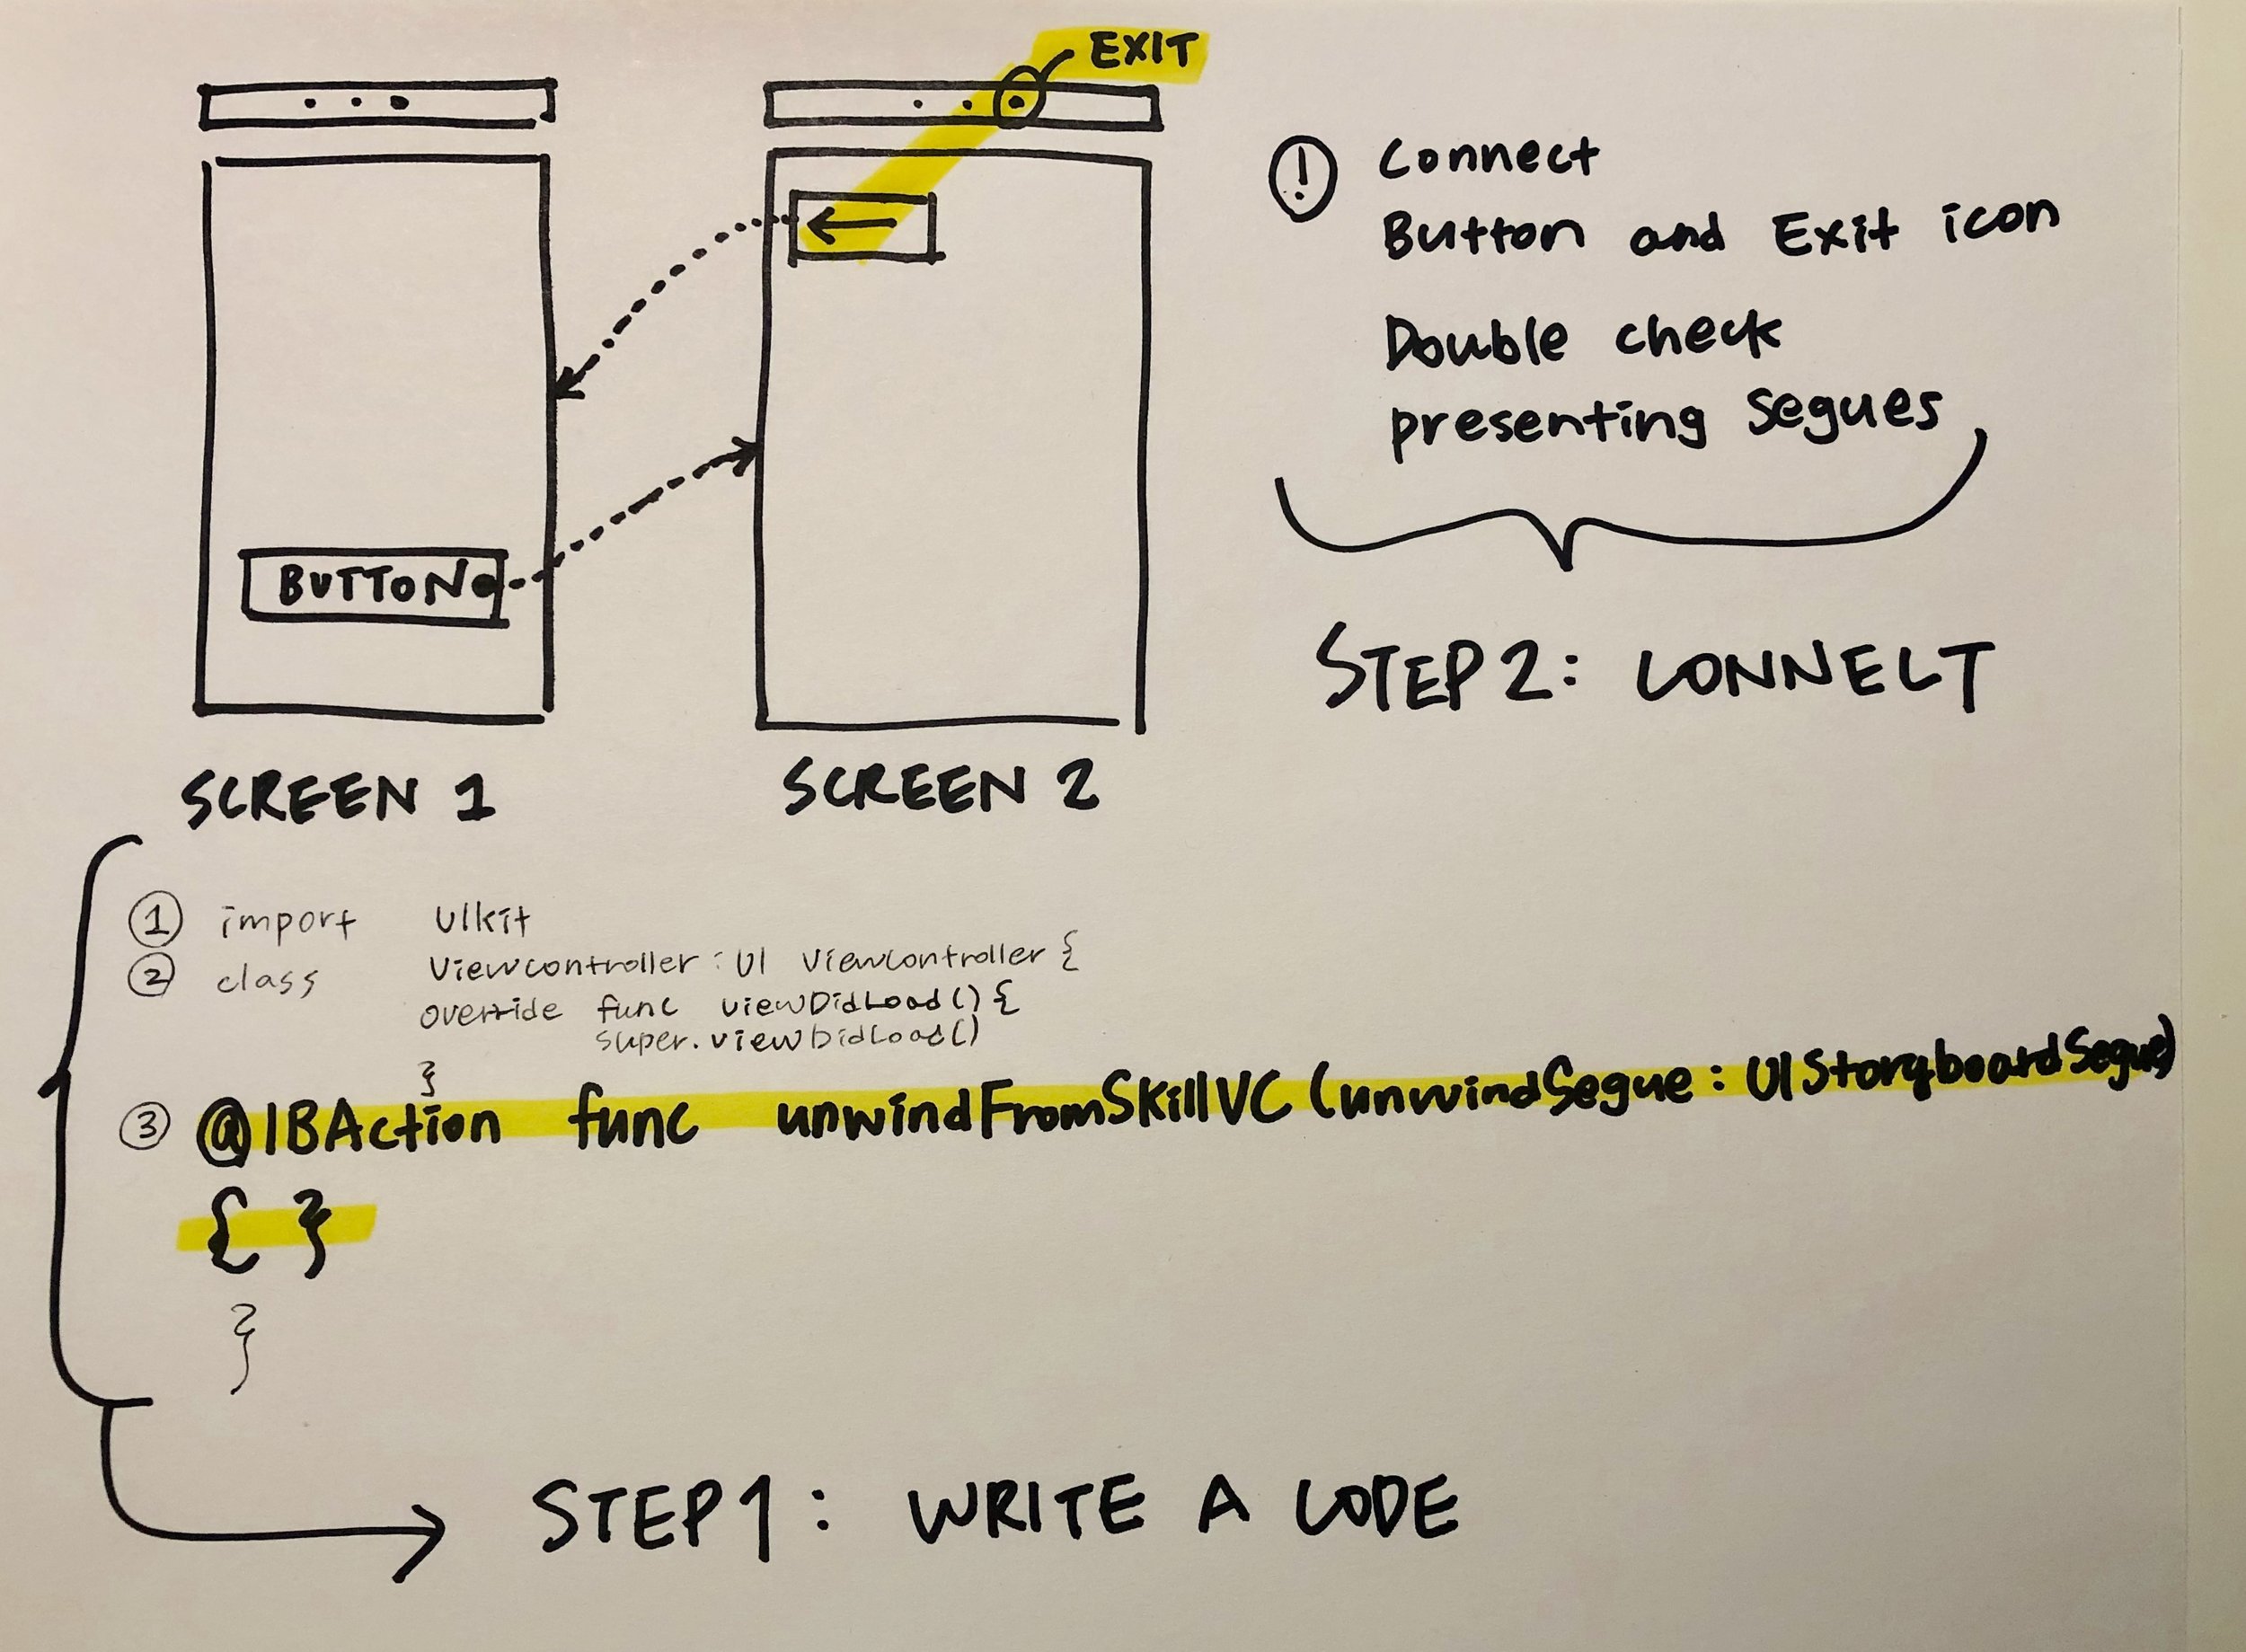 EXIT
BUTTON
SCREEN 1
SCREEN 2
! Connect
Button and Exit icon
Double check
presenting Segues
STEP 2: CONNECT
① import UIkit
② class ViewController: UI ViewController {
override func viewDidLoad() {
super.viewDidLoad()
}
③ @IBAction func unwindFromSkillVC (unwindSegue: UIStoryboardSegue)
{ }
}
STEP 1: WRITE A CODE